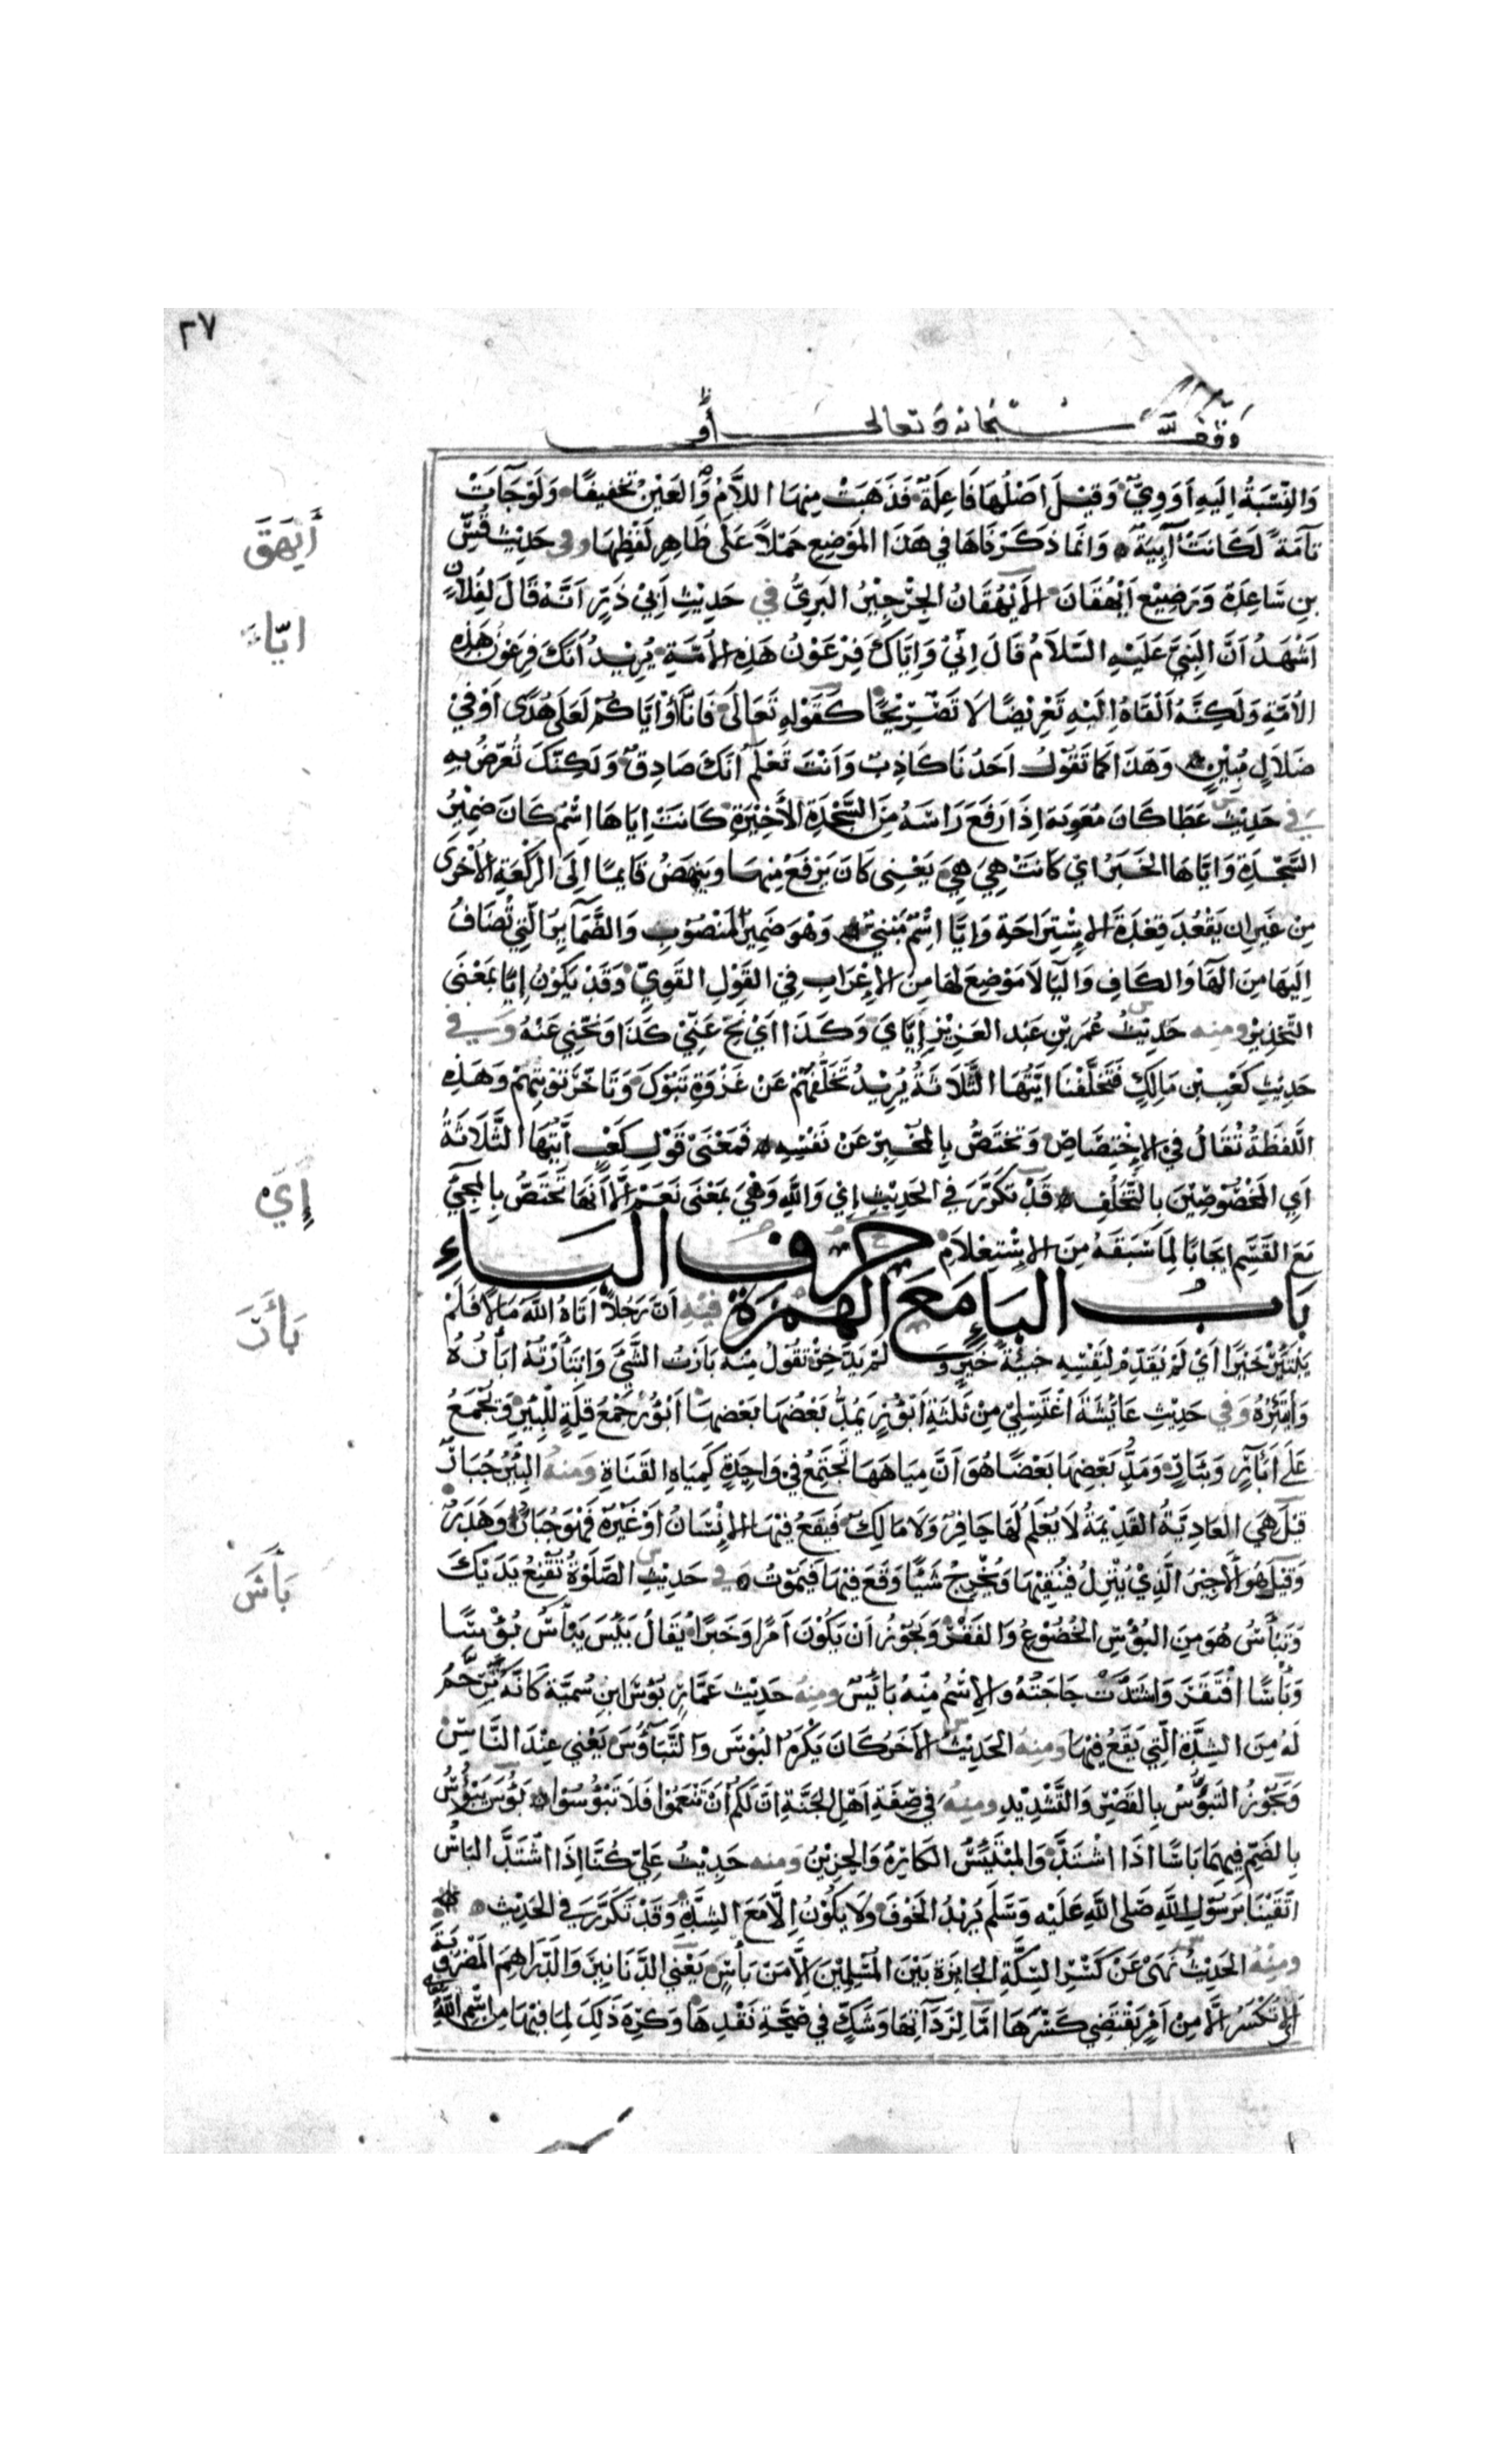 ٢٧
وقف لله سبحانه وتعالى
وَالنِّسْبَةُ اِلَيهِ اَوَوِيٌّ وَقِيْلَ اَصْلُهَا فَاعِلَةٌ فَذَهَبَتْ مِنهَا اللَّامُ وَالعَيْنُ تخفِيفًا وَلَوْجَآتْ
تآمَّةً لَكَانَتْ آيِيَةٌ وَاِنَّمَا ذَكَرْنَاهَا فِي هَذَا المَوْضِعِ حَمْلًا عَلَى ظَاهِرِ لَفْظِهَا وفى حَدِيْثِ قُسِّ
بنِ سَاعِدَةَ وَرَضِيْع اَيْهُقَانَ الأَيْهُقَانُ الجِرْجِيْرُ البَرِيُّ في حَدِيْثِ أَبِيْ ذَرٍّ اَنَّهُ قَالَ لِفُلَانٍ
اَشْهَدُ اَنَّ النَّبِيَّ عَلَيْهِ السَّلَامُ قَالَ اِنِّيْ وَاِيَّاكَ فِرْعَوْنُ هَذِهِ الأُمَّةِ يُرِيْدُ أنَّكَ فِرعَوْنُ هَذِهِ
الأمَّةِ وَلَكِنَّهُ اَلْقَاهُ اِلَيْهِ تَعْرِيْضًا لَا تَصْرِيْحًا كَقَوْلِهِ تَعَالَى فَاِنَّا اَوْ اِيَّاكُمْ لَعَلَى هُدًى اَوْ فِيْ
ضَلَالٍ مُبِيْنٍ وَهَذَا كَمَا تَقُوْلُ اَحَدُنَا كَاذِبٌ وَاَنْتَ تَعْلَمُ اَنَّكَ صَادِقٌ وَلَكِنَّكَ تُعَرِّضُ بِهِ
في حَدِيْثِ عَطَا كَانَ مُعٰوِيَةُ اِذَا رَفَعَ رَاسَهُ مِنَ السَّجْدَةِ الأَخِيْرَةِ كَانَتْ اِيَاهَا اِسْمُ كَانَ ضَمِيْرُ
السَّجْدَةِ وَاِيَّاهَا الخَبَرُ اي كَانَتْ هِيَ هِيَ يَعْنِى كَانَ يَرْفَعُ مِنهَا وَيَنهَضُ قَايمًا اِلَى الرَّكْعَةِ الأُخْرى
مِنْ غَيرِ ان يَقْعُدَ قِعْدَةَ الاِسْتِرَاحَةِ وَايَّا اِسْمٌ مَبْنِيٌّ وَهْوَ ضَمِيْرُ المَنْصُوْبِ وَالضَّمَآيرُ الَّتِي تُضَافُ
اِلَيهَا مِنَ الهَا وَالكَافِ وَاليَا لَا مَوْضِعَ لهَا مِن الاِعْرَابِ فِيْ القَوْلِ القَوِيِّ وَقَدْ يَكُوْنُ اِيَّا بمَعْنَى
التَّحْذِيْرِ ومنه حَدِيْثُ عُمَرَ بْنِ عَبدِ العَزِيْزِ اِيَّايَ وَكَذَا اَيْ نَحِّ عَنِّيْ كَذَا وَنَحِّنِي عَنْهُ وَفي
حَدِيْثِ كَعْبِ بْنِ مَالِكٍ فَتَخَلَّفْنَا اَيَّتُهَا الثَّلَاثَةُ يُرِيْدُ تَخَلُّفَهُمْ عَنْ غَزْوَةِ تَبُوْكَ وَتَاَخُّرَ تَوْبَتِهِمْ وَهَذِهِ
اللَّفْظَةُ تُقَالُ فِي الاِخْتِصَاصِ وَتَخْتَصُّ بِالمُخْبِرِ عَنْ نَفْسِهِ فَمَعْنَى قَوْلِ كَعْبٍ اَيَّتُهَا الثَّلَاثَةُ
اَيِ المَخْصُوْصِيْنَ بِالتَّخَلُّفِ قَدْ تَكَرَّرَ في الحَدِيْثِ اِي وَاللّٰهِ وَهْيَ بمَعْنَى نَعَمْ اِلَّا اَنَّهَا تَخْتَصُّ بِالمَجِيِّ
مَعَ القَسَمِ اِيجَابًا لِمَا سَبَقَهُ مِنَ الاِسْتِعْلَامِ حَرف البَاءِ
بَابُ البَاءِ مَعَ الهَمْزَةِ فيه اَنَّ رَجُلًا اَتَاهُ اللّٰهُ مَالًا فَلَمْ
يَبْتَئِرْ خَيْرًا اَيْ لَمْ يُقَدِّمْ لِنَفْسِهِ خَبِيْئَةَ خَيْرٍ وَ لَمْ يَدَّخِرْ تَقُوْلُ مِنْهُ بَاَرْتُ الشَّيَ وَابْتَأَرْتُهُ اَبْأَرُهُ
وَأَبْتَئِرُهُ وَفي حَدِيْثِ عَائِشَةَ اغْتَسِلِيْ مِنْ ثَلٰثَةِ اَبْؤُرٍ يَمُدُّ بَعْضُهَا بَعْضهَا اَبْؤُرٌ جَمْعُ قِلَّةٍ لِلْبِئْرِ وَتُجْمَعُ
عَلَى اَبْآرٍ وَبِئَارٍ وَمَدُّ بَعْضِهَا بَعْضًا هُوَ اَنَّ مِيَاهَهَا تَجْتَمِعُ فِيْ وَاحِدَةٍ كَمِيَاهِ القَنَاةِ وَمنهُ البِئْرُ جُبَارٌ
قِيْلَ هِيَ العَادِيَّةُ القَدِيْمَةُ لَا يُعْلَمُ لَهَا حَافِرٌ وَلَا مَالِكٌ فَيَقَعُ فِيْهَا الاِنْسَانُ اَوْ غَيْرُهُ فَهُوَ جُبَارٌ وَهَدَرٌ
وَقِيْلَ هُوَ الأَجِيْرُ الَّذِيْ يَنْزِلُ فَيُنَقِيْهَا وَيُخْرِجُ شَيًا وَقَعَ فِيْهَا فَيَمُوْتُ في حَدِيْثِ الصَّلٰوةِ تُقْنِعُ يَدَيْكَ
وَتَبْأَسُ هُوَ مِنَ البُؤْسِ الخُضُوْعِ وَالفَقْرِ وَيَجُوْزُ اَنْ يَكُوْنَ اَمْرًا وَخَبَرًا يُقَالُ بَئِسَ يَبْأَسُ بُؤْسًا
وَبَأْسًا افْتَقَرَ وَاشْتَدَّتْ حَاجَتُهُ وَالاِسْمُ مِنْهُ بَائِسٌ ومنهُ حَدِيْثُ عَمَّارٍ بُؤْسَ ابنِ سُمَيَّةَ كَانَّهُ تَرَحَّمَ
لَهُ مِنَ الشِّدَّةِ الَّتِي يَقَعُ فِيْهَا ومنهُ الحَدِيْثُ الآخَرُ كَانَ يَكْرَهُ البُؤْسَ وَالتَّبَآؤُسَ يَعْنِي عِنْدَ النَّاسِ
وَيَجُوْزُ التَبَؤُّسُ بِالقَصْرِ وَالتَّشْدِيْدِ ومِنهُ في صِفَةِ اَهْلِ الجَنَّةِ اِنَّ لَكُمْ اَنْ تَنْعَمُوْا فَلَا تَبْؤُسُوْا بَؤُسَ يَبْؤُسُ
بِالضَّمِّ فِيهِمَا بَاسًا اِذَا اشْتَدَّ وَالمُبْتَئِسُ الكَارِهُ وَالحَزِيْنُ وَمنه حَدِيْثُ عَلِيٍّ كُنَّا اِذَا اشْتَدَّ البَأْسُ
اتَّقَيْنَا بِرَسُوْلِ اللّٰهِ صَلَى اللّٰهُ عَلَيْهِ وَسَلَّمَ يُرِيْدُ الخَوْفَ وَلَا يَكُوْنُ اِلَّا مَعَ الشِّدَّةِ وَقَدْ تَكَرَّرَ في الحَدِيْثِ
ومِنْهُ الحَدِيْثُ نَهَىٰ عَنْ كَسْرِ السِّكَّةِ الجَايِزَةِ بَيْنَ المُسْلِمِيْنَ اِلَّا مِنْ بَأْسٍ يَعْنِي الدَّنَانِيرَ وَالدَّرَاهِمَ المَضْرُوْبَةَ
اَىْ لَا تُكْسَرُ اِلَّا مِنْ اَمْرٍ يَقْتَضِي كَسْرَهَا اِمَّا لِرَدَآتِهَا وَشَكٍّ فِي صِحَّةِ نَقْدِهَا وَكَرِهَ ذَلِكَ لِمَا فِيْهَا مِنِ اسْمِ اللّٰهِ
أَيَهَقَ
ايّاءَ
إِيْ
بَأَرَ
بَأَسَ